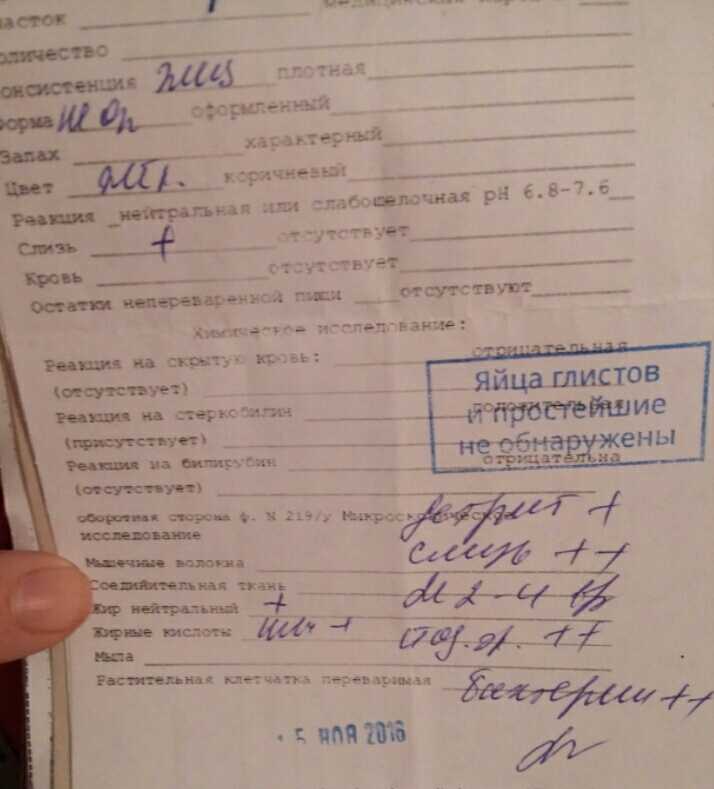 Медицинская карта
часток
оличество
онсистенция плотная
орма не оф оформленный
Запах характерный
Цвет коричневый
Реакция нейтральная или слабощелочная pH 6.8-7.6
Слизь + отсутствует
Кровь отсутствует
Остатки непереваренной пищи отсутствуют
Химическое исследование:
Реакция на скрытую кровь: отрицательная
(отсутствует)
Яйца глистов
Реакция на стеркобилин положительная
и простейшие
(присутствует)
не обнаружены
Реакция на билирубин отрицательна
(отсутствует)
оборотная сторона ф. N 219/у Микроскопическое
исследование
детрит +
Мышечные волокна слизь ++
Соединительная ткань 2-4
Жир нейтральный +
Жирные кислоты + ++
Мыла
Растительная клетчатка переваримая бактерии ++
5 НОЯ 2016